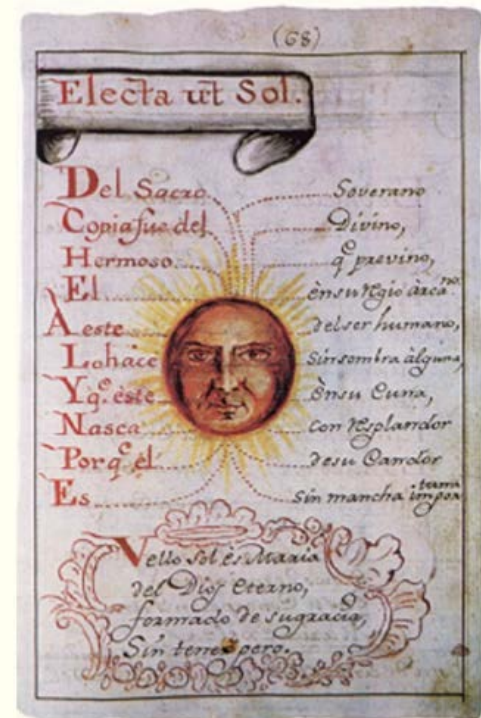 (68)
Electa ut Sol.
Del Sacro Soverano
Copia fue del Divino,
Hermoso qe. previno,
El en su regio àrcano.
À este del ser humano,
Lo hace Sin sombra àlguna,
Y qe. èste Ènsu Cuna,
Nasca Con resplandor
Porqe. èl de su Candor
Es Sin mancha
Vello Sol ès Maria
del Dios eterno,
formado de su gracia,
Sin tener pero.